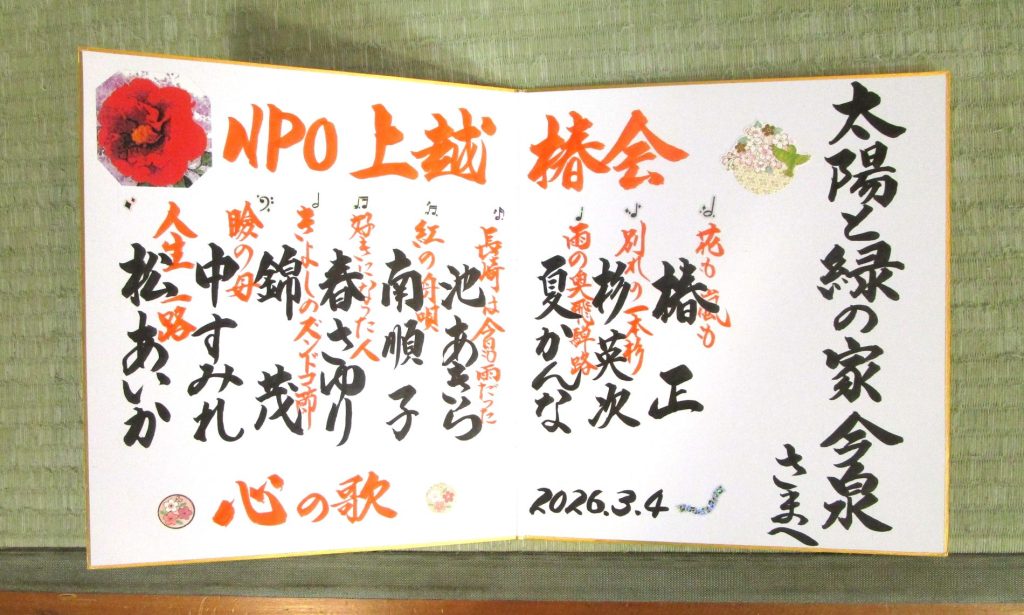 太陽と緑の家 今泉
さまへ
NPO 上越 椿会
花も嵐も
椿 正
別れの一本杉
杉英次
雨の奥飛騨路
夏かんな
長崎は今日も雨だった
池あきら
紅の舟唄
南順子
好きになった人
春さゆり
きよしのズンドコ節
錦 茂
瞼の母
中すみれ
人生一路
松あいか
心の歌
2026.3.4